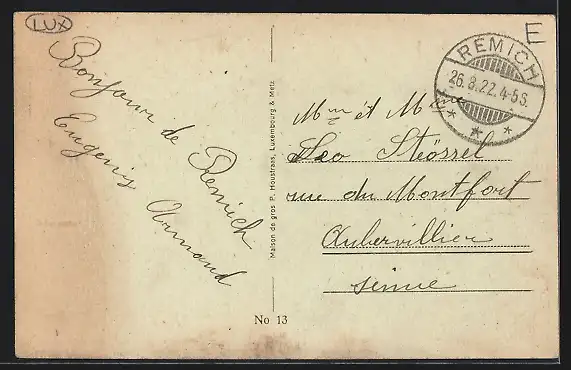 LUX
E
REMICH
26.8.22.4-5S.
Bonjour de Remich
Eugenie Armand
Maison de gros P. Houstraas, Luxembourg & Metz
Mr et Mme
Leo Strössel
rue du Montfort
Aubervillier
Seine
No 13